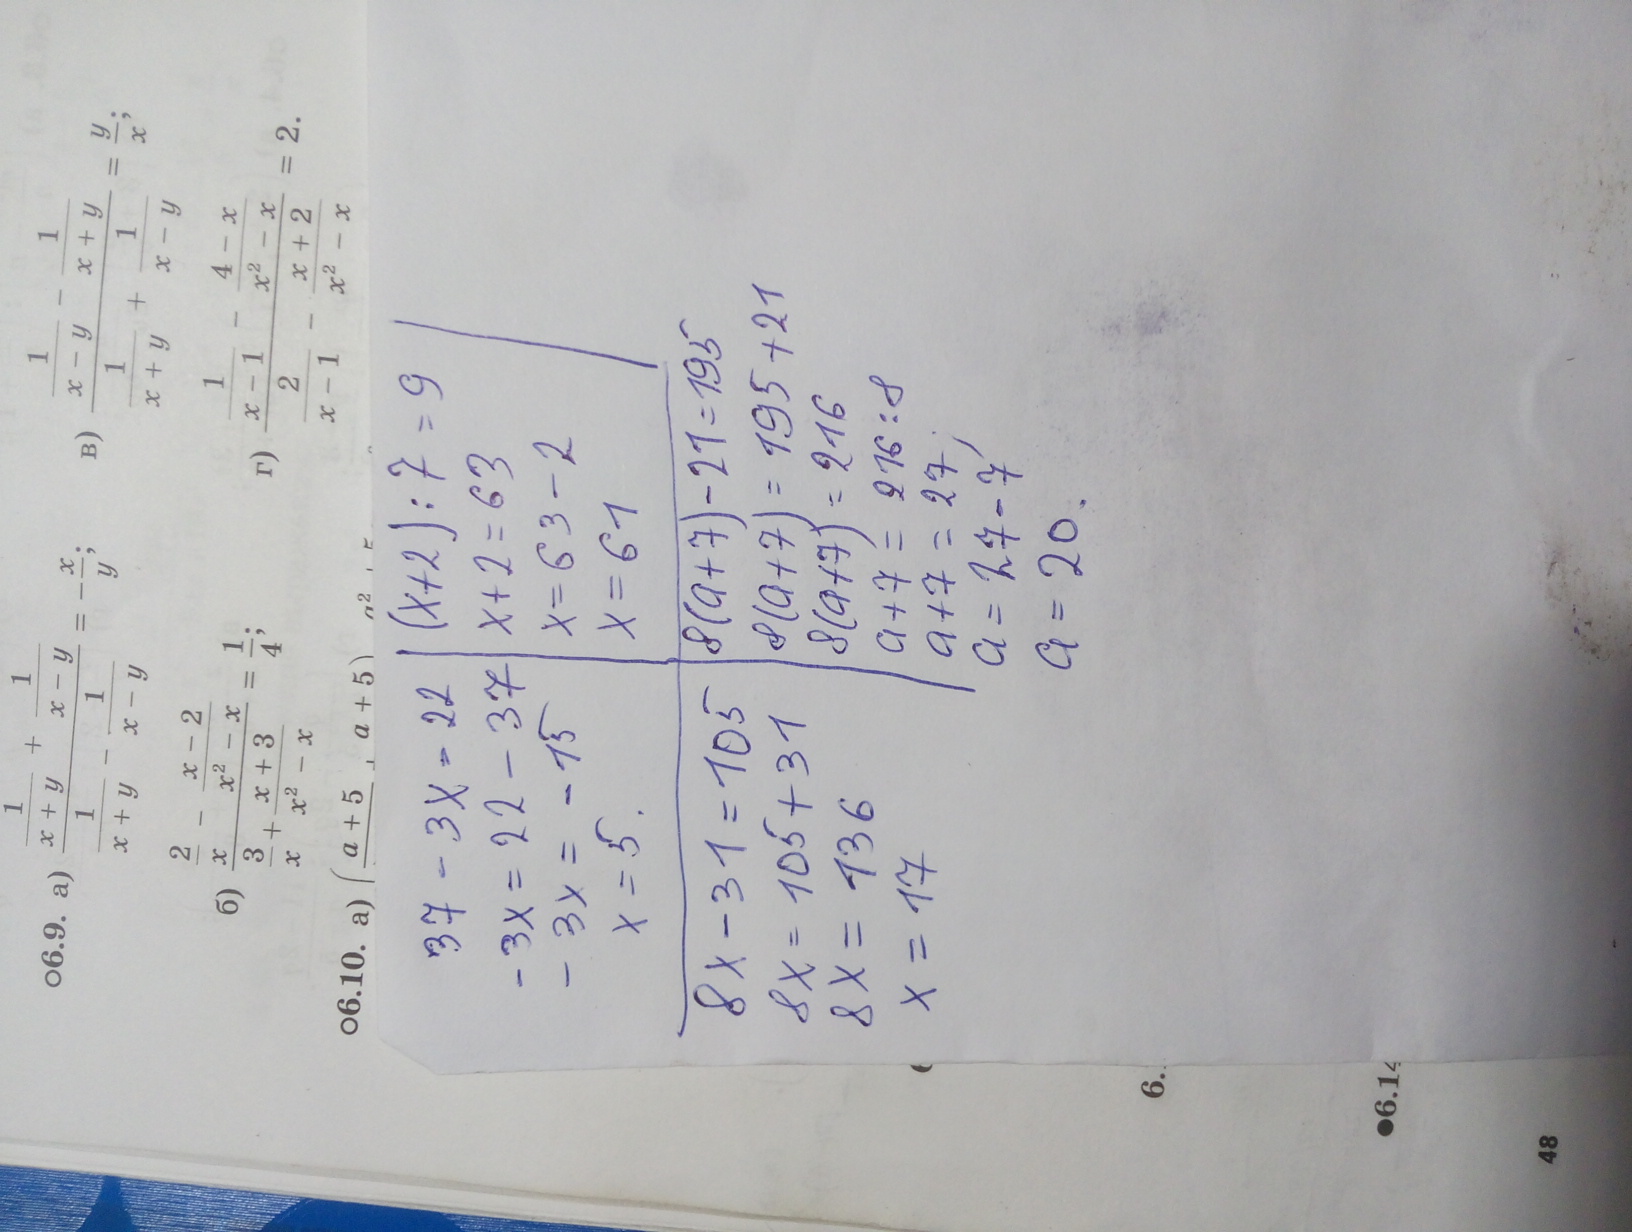 ○6.9. а) \frac{\frac{1}{x+y} + \frac{1}{x-y}}{\frac{1}{x+y} - \frac{1}{x-y}} = -\frac{x}{y};
в) \frac{\frac{1}{x-y} - \frac{1}{x+y}}{\frac{1}{x+y} + \frac{1}{x-y}} = \frac{y}{x};
б) \frac{\frac{2}{x} - \frac{x-2}{x^2-x}}{\frac{3}{x} + \frac{x+3}{x^2-x}} = \frac{1}{4};
г) \frac{\frac{1}{x-1} - \frac{4-x}{x^2-x}}{\frac{2}{x-1} - \frac{x+2}{x^2-x}} = 2.
○6.10. а)
37 - 3x = 22
-3x = 22 - 37
-3x = -15
x = 5.
(x+2):7 = 9
x+2 = 63
x = 63 - 2
x = 61
8x - 31 = 105
8x = 105 + 31
8x = 136
x = 17
8(a+7) - 21 = 195
8(a+7) = 195 + 21
8(a+7) = 216
a+7 = 216:8
a+7 = 27;
a = 27 - 7
a = 20.
6.
●6.14
48